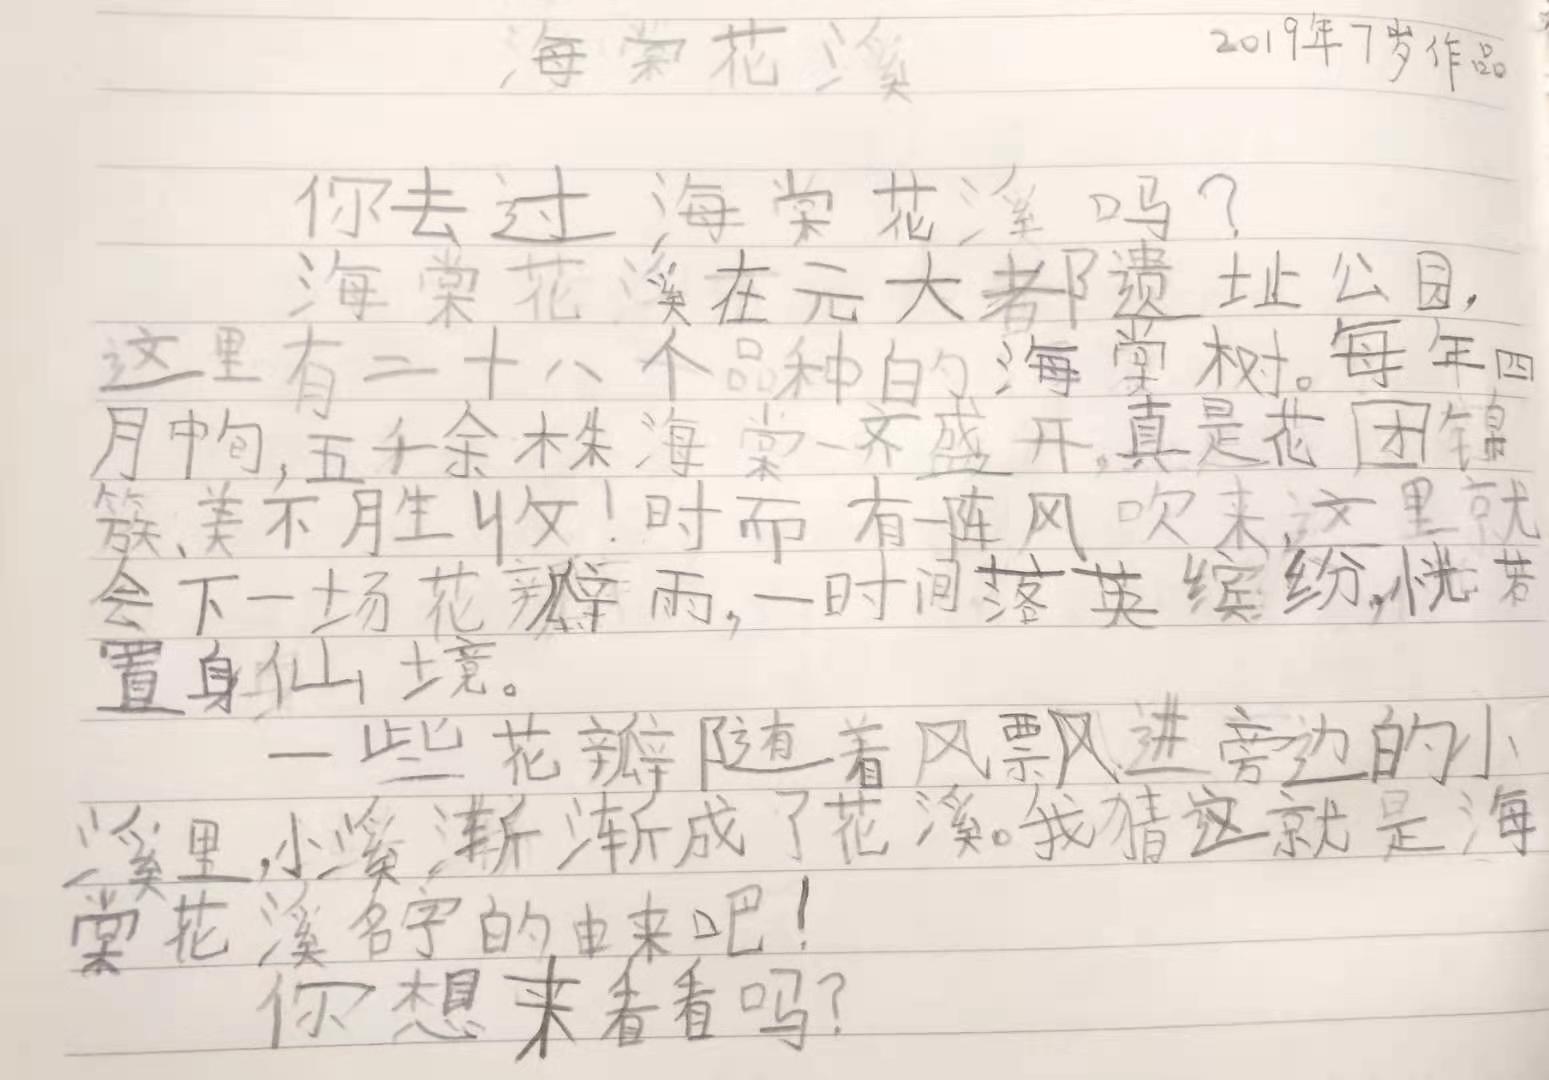 海棠花溪
2019年7岁作品
你去过海棠花溪吗？
海棠花溪在元大都遗址公园，
这里有二十八个品种的海棠树。每年四
月中旬，五千余株海棠一齐盛开，真是花团锦
簇、美不胜收！时而有一阵风吹来，这里就
会下一场花瓣雨，一时间落英缤纷，恍若
置身仙境。
一些花瓣随着风飘进旁边的小
溪里，小溪渐渐成了花溪。我猜这就是海
棠花溪名字的由来吧！
你想来看看吗？